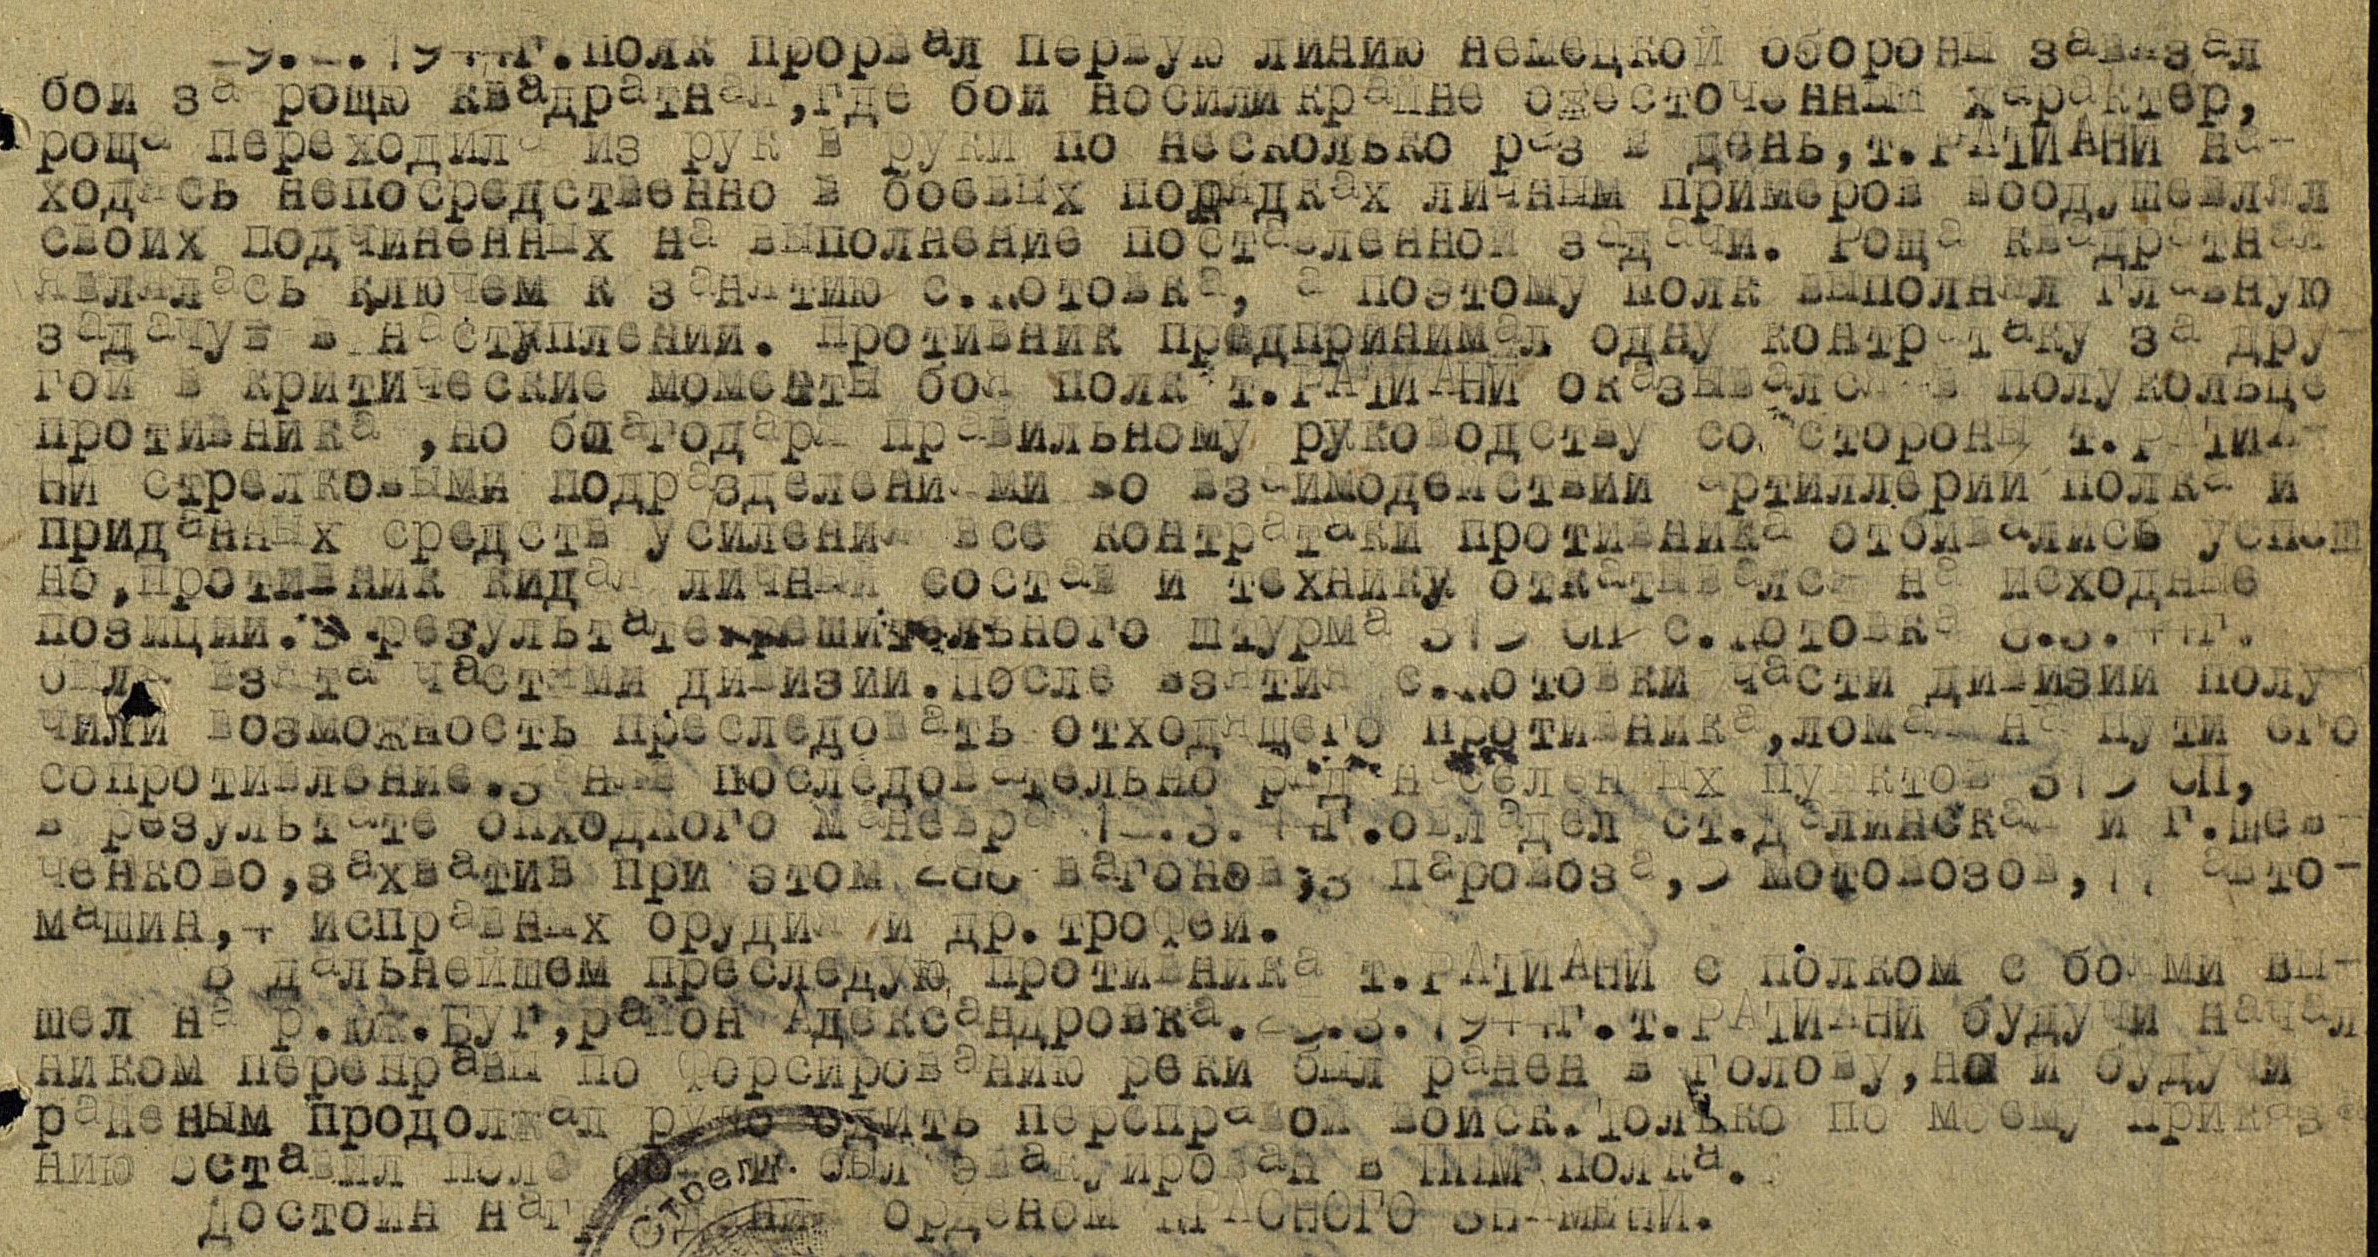 полк прорвал первую линию немецкой обороны завязал
бои за рощю квадратная,где бои носили крайне ожесточенный характер,
роща переходила из рук в руки по несколько раз в день,т.РАТИАНИ на-
ходясь непосредственно в боевых порядках личным примеров воодушевлял
своих подчиненных на выполнение поставленной задачи. Роща квадратная
являлась ключем к занятию с.Котовка, а поэтому полк выполнял главную
задачув в наступлении. Противник предпринимал одну контратаку за дру-
гой в критические моменты боя полк т.РАТИАНИ оказывался в полукольце
противника ,но благодаря правильному руководству со стороны т.РАТИА-
НИ стрелковыми подразделениями во взаимодействии артиллерии полка и
приданных средств усиления все контратаки противника отбивались успеш
но,противник кидая личный состав и технику откатывался на исходные
позиции.В результате решительного штурма СП с.Котовка 8.3.44г.
была взята частями дивизии.После взятия с.Котовки части дивизии полу-
чили возможность преследовать отходящего противника,ломая на пути его
сопротивление.Заняв последовательно ряд населенных пунктов СП,
в результате опходного маневра овладел ст.Долинская и г.Шев-
ченково,захватив при этом вагонов,3 паровоза,5 мотовозов, авто-
машин,4 исправных орудия и др.трофеи.
В дальнейшем преследую противника т.РАТИАНИ с полком с боями вы-
шел на р.Юж.Буг,район Александровка. т.РАТИАНИ будучи начал
ником перенравы по форсированию реки был ранен в голову,но и будучи
раненым продолжал руководить переправой войск.Только по моему приказа
нию оставил поле боя и был эвакуирован в ППМ полка.
Достоин награждения орденом КРАСНОГО ЗНАМЕНИ.
Стрелк.